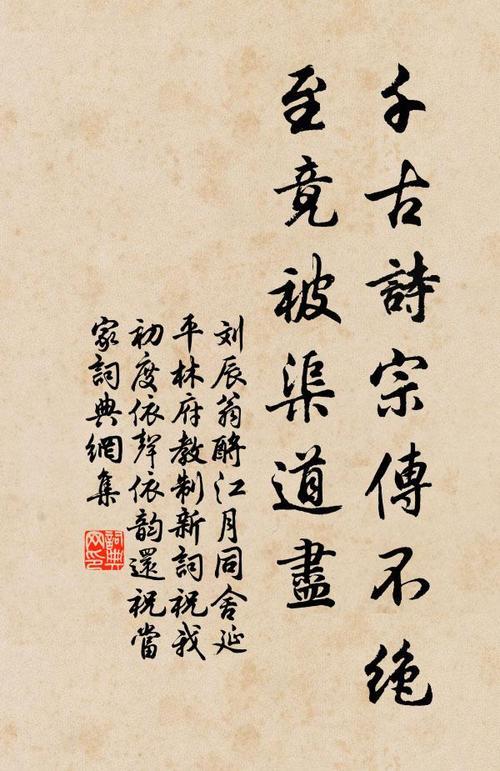 千古詩宗傳不絶
至竟被渠道盡
刘辰翁酹江月同舍延
平林府教制新詞祝我
初度依聲依韵還祝當
家詞典網集
詞典網印